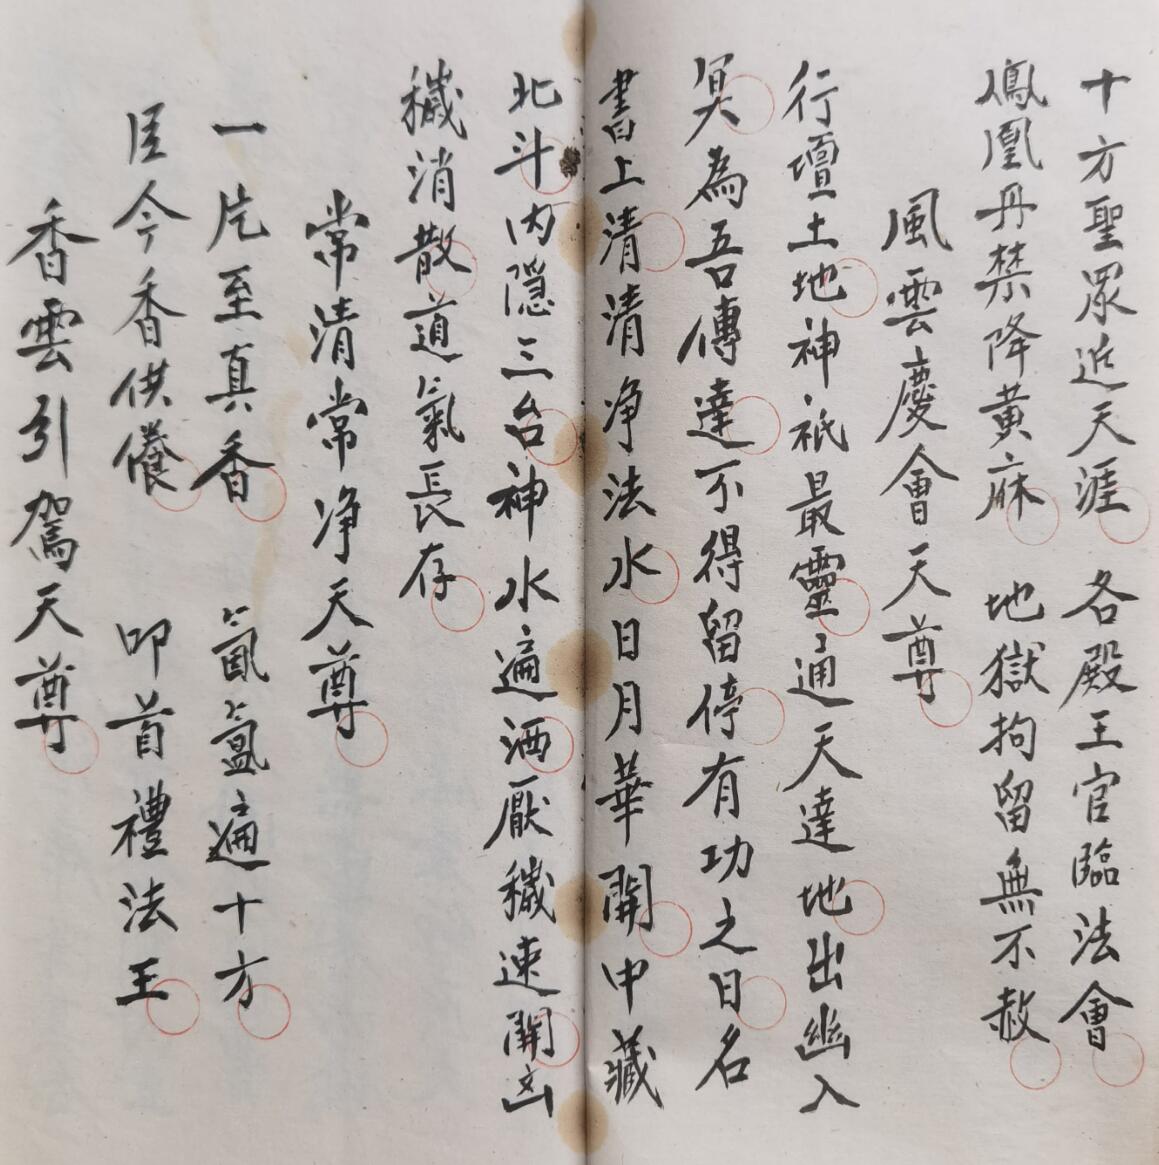 十方聖眾近天涯 各殿王官臨法會
鳳凰丹禁降黃麻 地獄拘留無不赦
風雲慶會天尊
行壇土地神祇最靈通天達地出幽入
冥為吾傳達不得留停有功之日名
書上清清净法水日月華開中藏
北斗内隱三台神水遍洒厭穢速開凶
穢消散道氣長存
常清常净天尊
一炁至真香 氤氳遍十方
臣今香供養 叩首禮法王
香雲引駕天尊